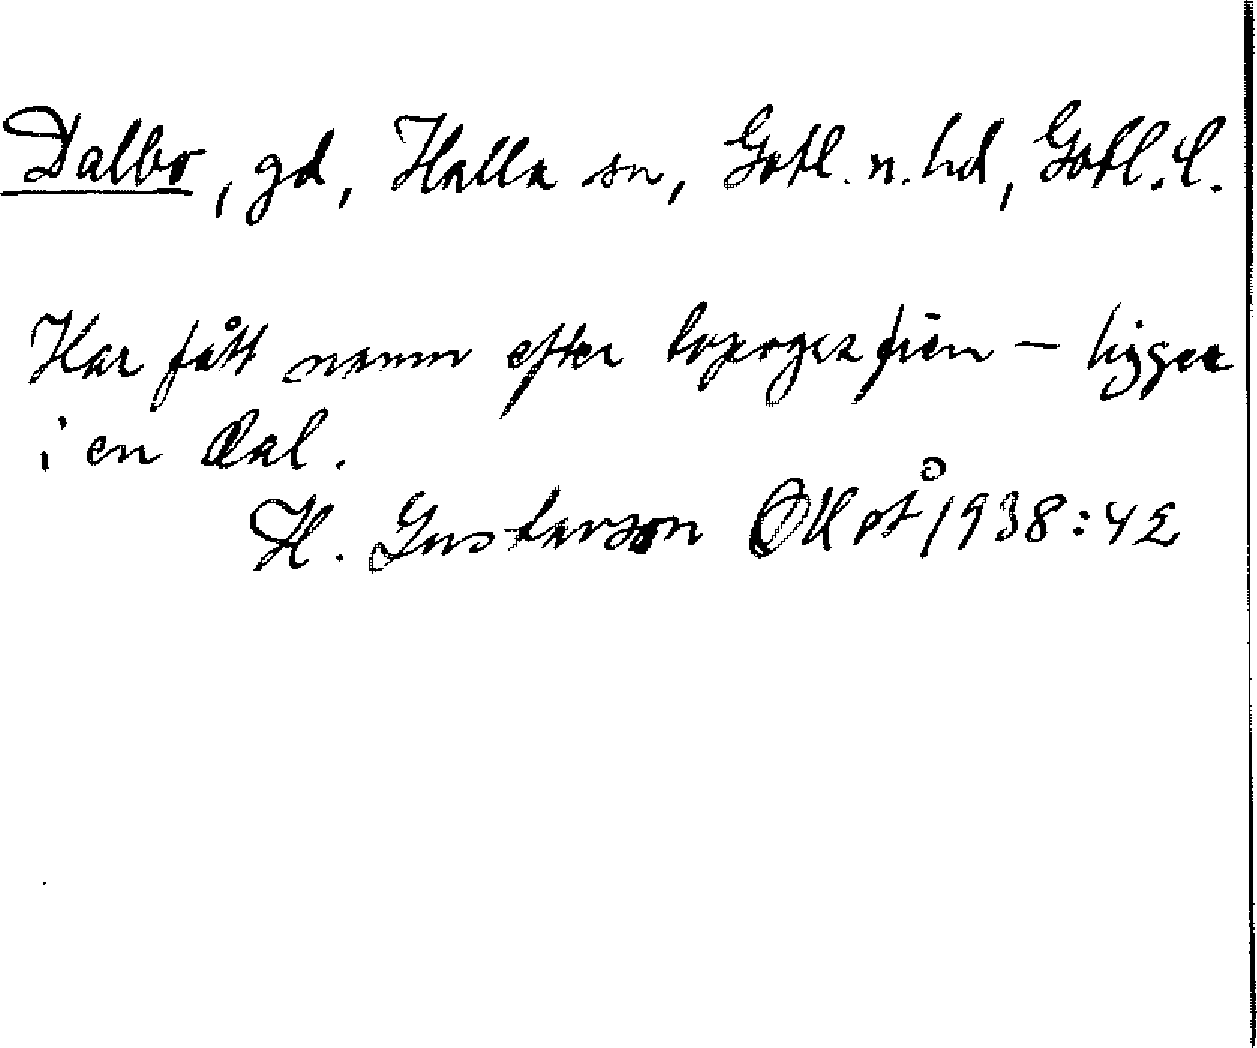 Dalbo, gd, Halla sn, Gotl. n. hd, Gotl. l.
Har fått namn efter topografien – ligger
i en dal.
H. Gustavson OKot Å 1938:42